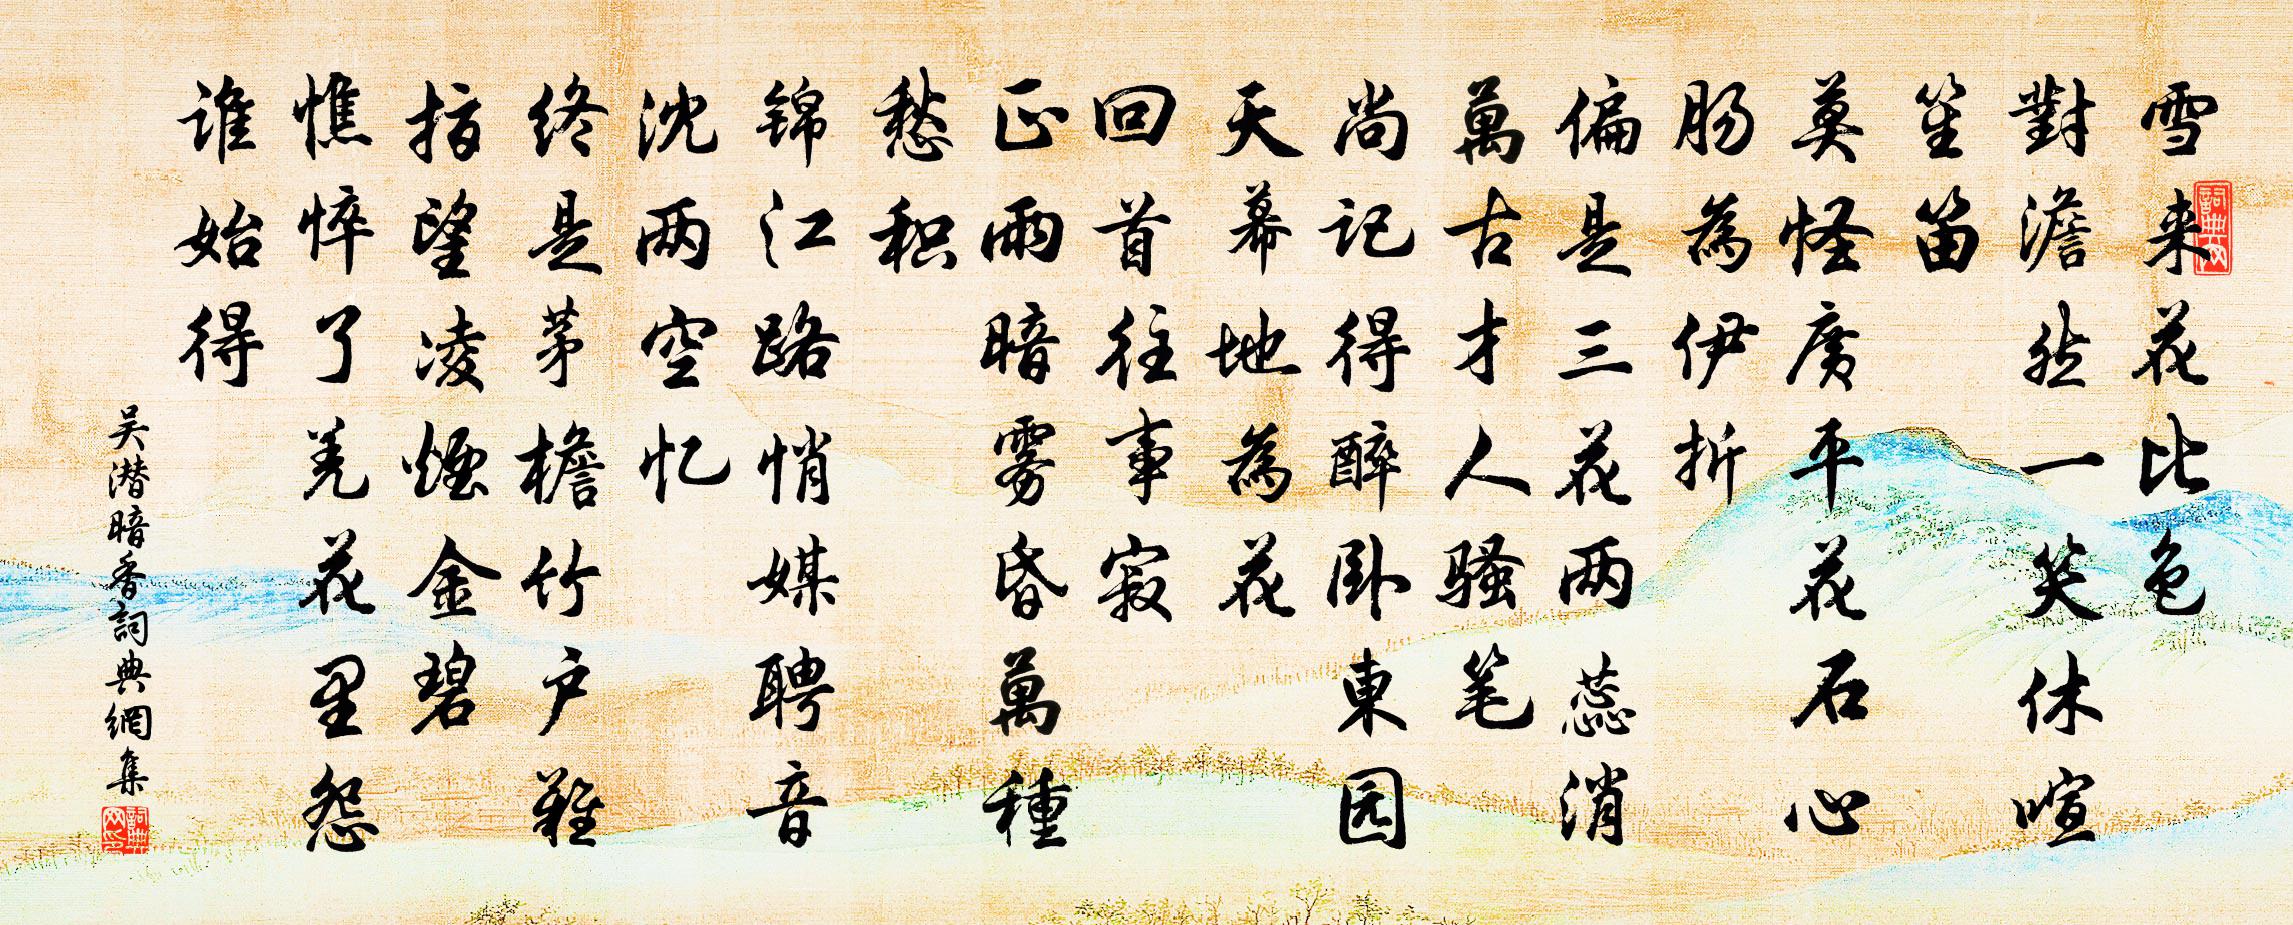 雪来花比色
對澹然一笑休喧
笙笛
莫怪廣平花石心
肠為伊折
偏是三花两蕊消
萬古才人骚笔
尚记得醉卧東园
天幕地為花
回首往事寂
正雨暗雾昏萬種
愁积
锦江路悄媒聘音
沈两空忆
终是茅檐竹户难
指望凌煙金碧
憔悴了羌花里怨
谁始得
吴潜暗香詞典網集
詞典网
詞典网印